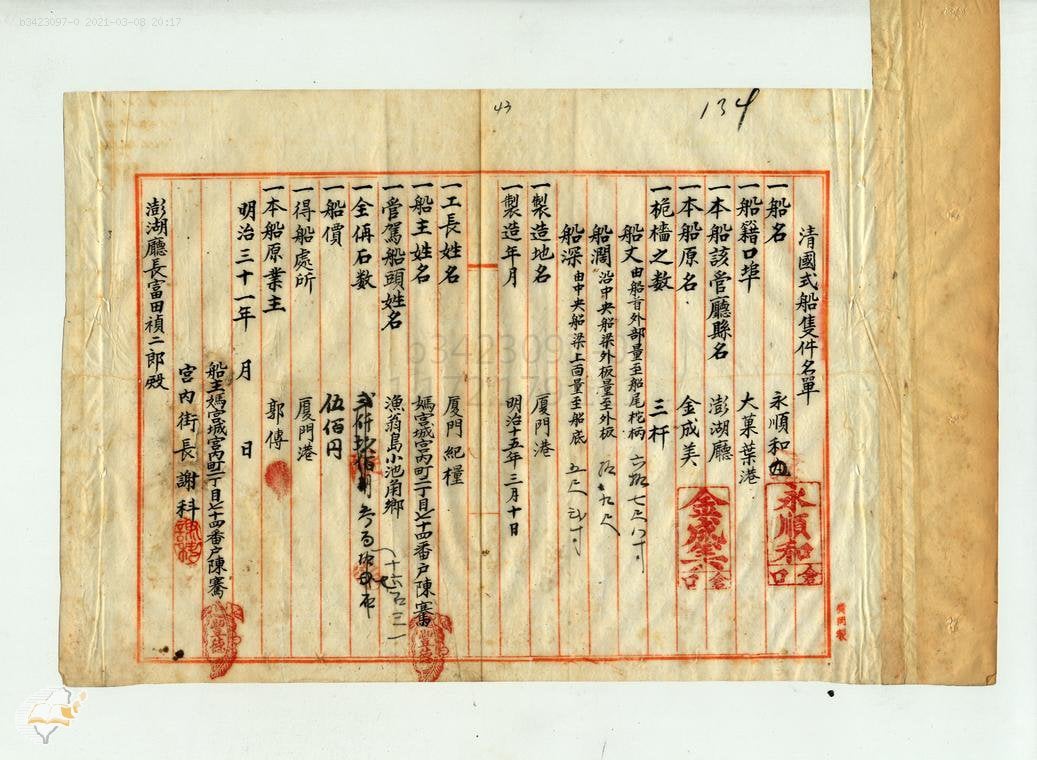 b3423097-0 2021-03-08 20:17
43
134
清國式船隻件名單
一船名 永順和
永順和
一船籍口埠 大菓葉港
一本船該管廳縣名 澎湖廳
一本船原名 金成美
金成美
一桅檣之數 三杆
船丈 由船首外部量至船尾柁柄 六拾七尺八寸
船濶 沿中央船梁外板量至外板 拾九尺
船深 由中央船梁上面量至船底 五尺
一製造地名 厦門港
一製造年月 明治十五年三月十日
一工長姓名 厦門 紀糧
一船主姓名 媽宮城宮內町一丁目七十四番戶陳騫
一管駕船頭姓名 漁翁島小池角鄉
一仝侢石數
一船價 伍佰円
一得船處所 厦門港
一本船原業主 郭傳
明治三十一年 月 日
船主媽宮城宮內町一丁目七十四番戶陳騫
宮內街長 謝科
澎湖廳長富田禎二郎殿